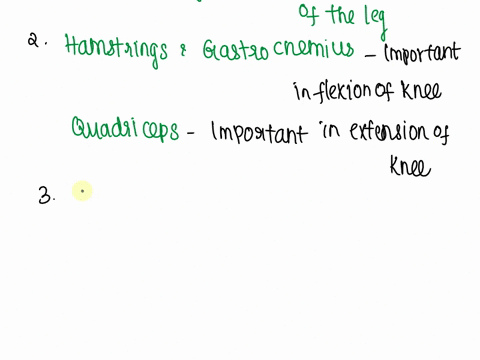 of the leg
2. Hamstrings & Gastrocnemius - Important
in flexion of knee
Quadriceps - Important in extension of
knee
3.